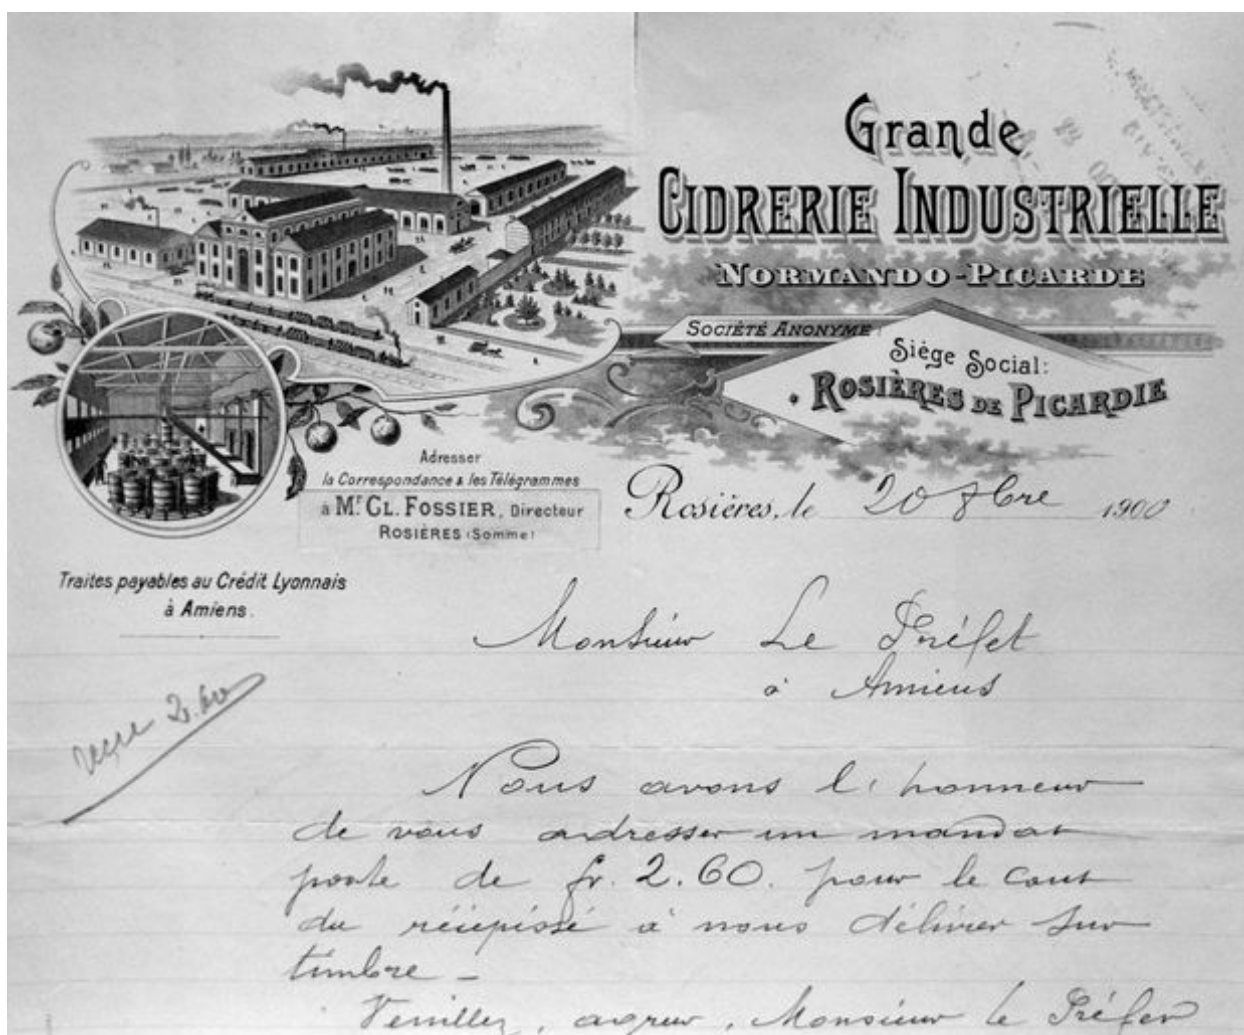 Grande
CIDRERIE INDUSTRIELLE
NORMANDO-PICARDE
SOCIÉTÉ ANONYME
Siège Social:
ROSIÈRES DE PICARDIE
Adresser
la Correspondance & les Télégrammes
à Mr CL. FOSSIER, Directeur
ROSIÈRES (Somme)
Rosières, le 20 8bre 1900
Traites payables au Crédit Lyonnais
à Amiens.
Monsieur Le Préfet
à Amiens
reçu 2.60
Nous avons l'honneur
de vous adresser un mandat
poste de fr. 2.60. pour le cout
du récépissé à nous délivrer sur
timbre -
Veuillez, agréer, Monsieur le Préfet